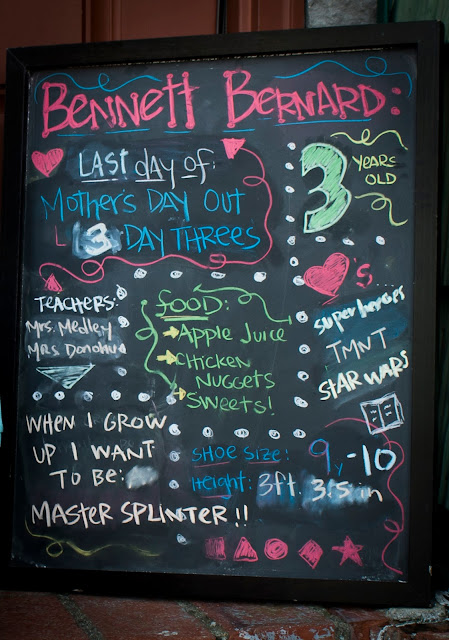 BENNETT BERNARD:
LAST day of:
MOTHER'S DAY OUT
3 DAY THREES
3 YEARS OLD
TEACHERS:
MRS. MEDLEY
MRS DONOHUE
FOOD:
APPLE JUICE
CHICKEN
NUGGETS
SWEETS!
'S...
superheroes
TMNT
STAR WARS
WHEN I GROW
UP I WANT
TO BE:
MASTER SPLINTER!!
SHOE SIZE: 9 -10
HEIGHT: 3ft. 3.5 in